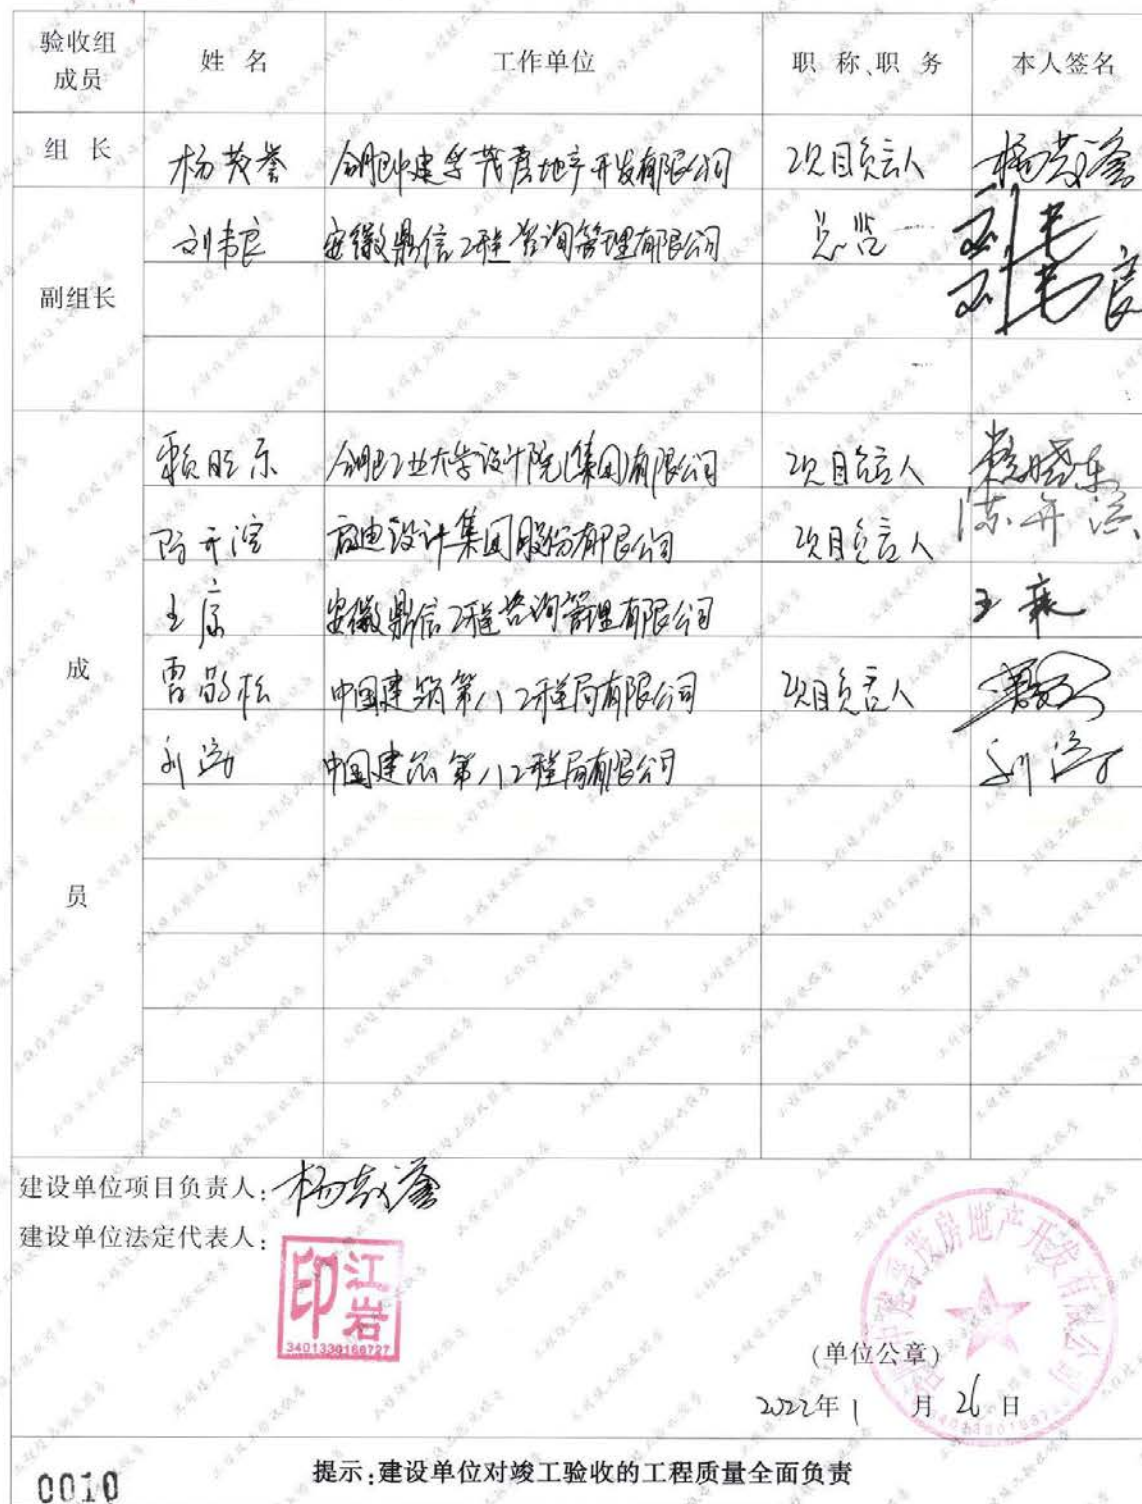 验收组成员 姓名 工作单位 职称、职务 本人签名
组长 杨茂誉 合肥中建孚茂房地产开发有限公司 项目负责人 杨茂誉
刘韦良 安徽鼎信工程咨询管理有限公司 总监 刘韦
副组长 刘韦良
赖晓东 合肥工业大学设计院(集团)有限公司 项目负责人 赖晓东
启迪设计集团股份有限公司 项目负责人
王康 安徽鼎信工程咨询管理有限公司 王康
成 曹敬松 中国建筑第八工程局有限公司 项目负责人
刘 中国建筑第八工程局有限公司 刘
员
建设单位项目负责人: 杨茂誉
建设单位法定代表人:
江岩印
3401330188727
合肥中建孚茂房地产开发有限公司
(单位公章)
2022年1月26日
0010 提示:建设单位对竣工验收的工程质量全面负责